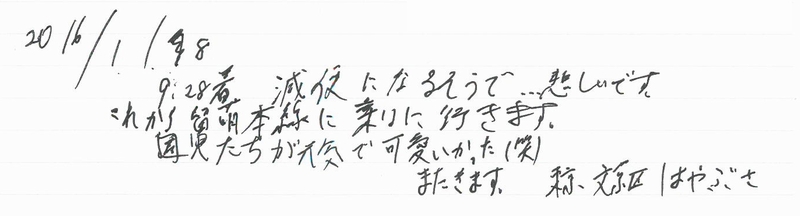 2016/1/8
9:28着 減便になるそうで…悲しいです。
これから留萌本線に乗りに行きます。
園児たちが元気で可愛いかった(笑)
またきます。 文京区 はやぶさ